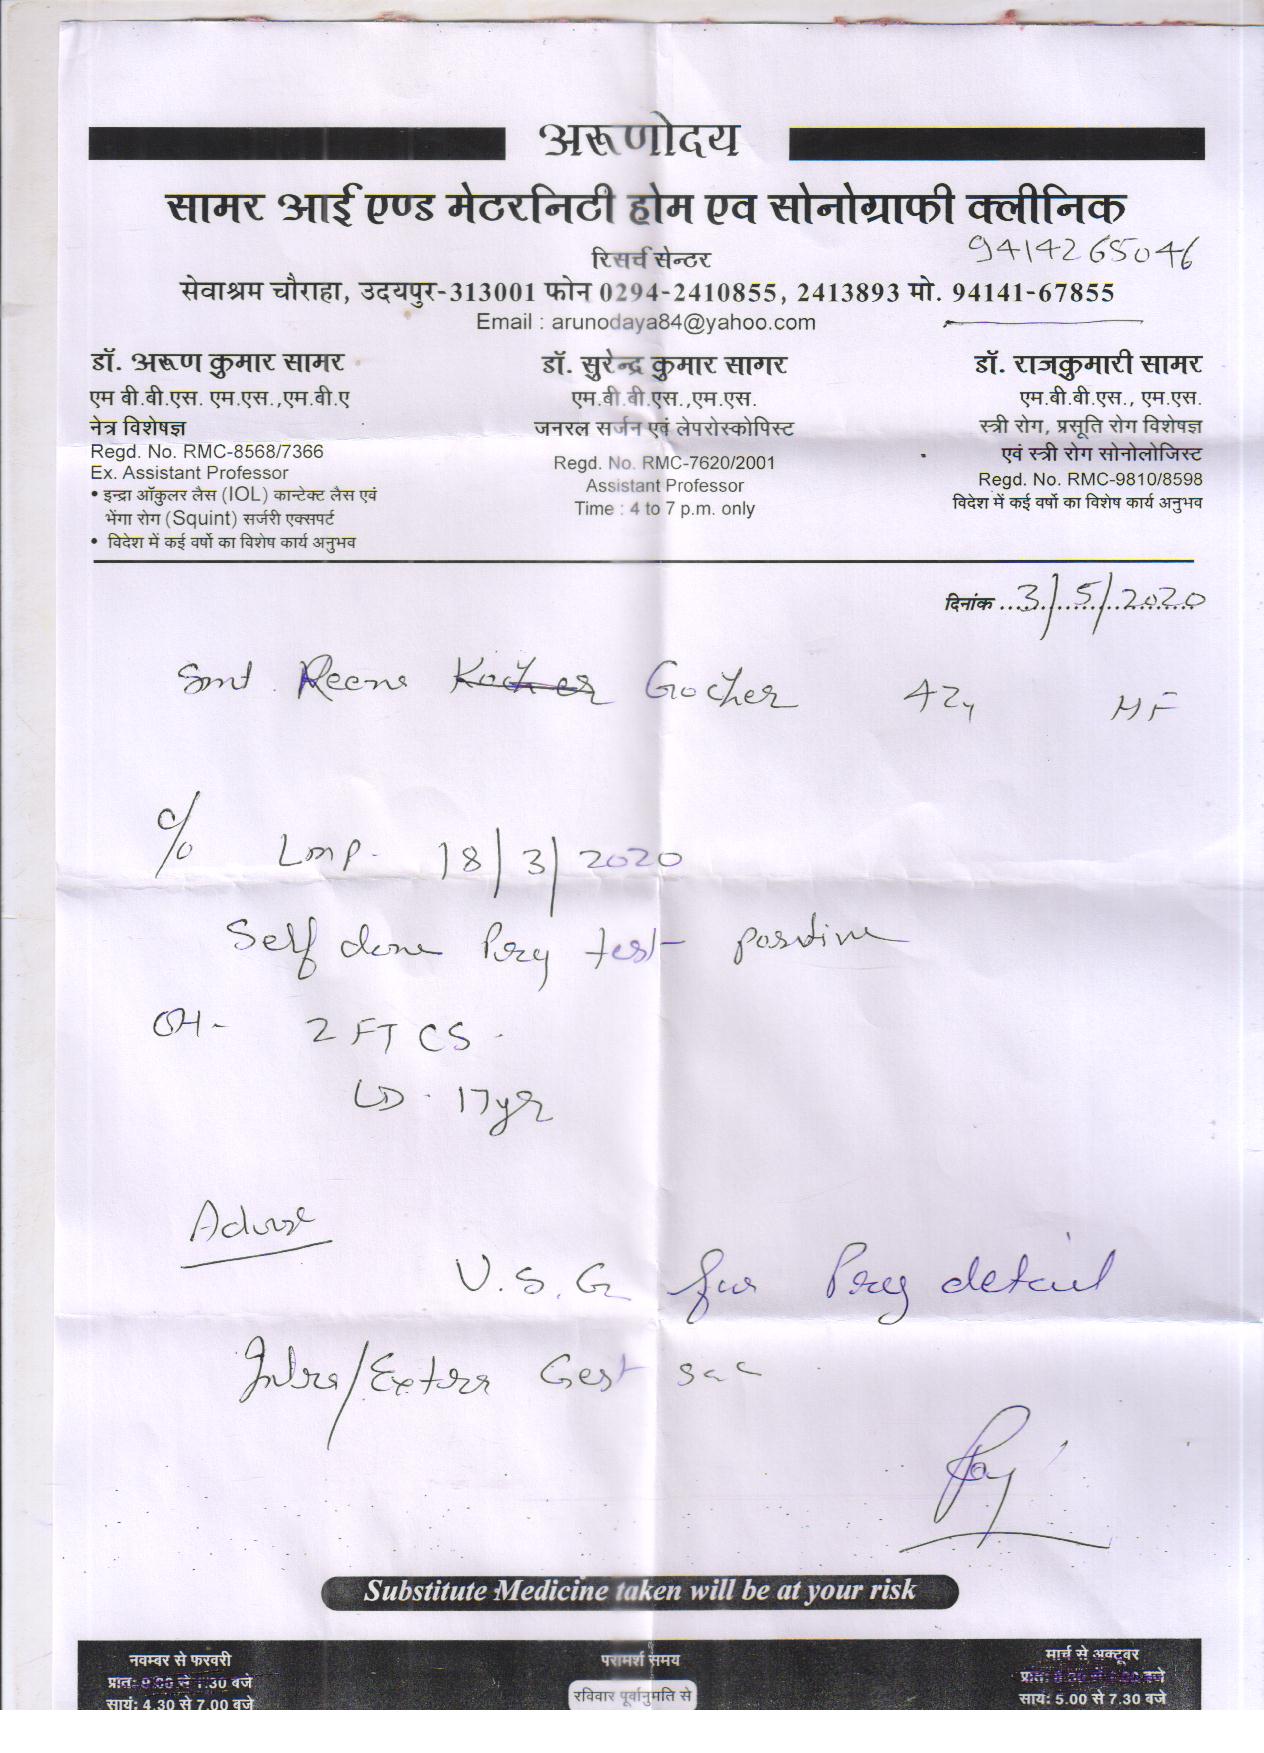 अरूणोदय
सामर आई एण्ड मेटरनिटी होम एव सोनोग्राफी क्लीनिक
रिसर्च सेन्टर
9414265046
सेवाश्रम चौराहा, उदयपुर-313001 फोन 0294-2410855, 2413893 मो. 94141-67855
Email : arunodaya84@yahoo.com
डॉ. अरूण कुमार सामर
एम बी.बी.एस. एम.एस.,एम.बी.ए
नेत्र विशेषज्ञ
Regd. No. RMC-8568/7366
Ex. Assistant Professor
• इन्द्रा ऑकुलर लैस (IOL) कान्टेक्ट लैस एवं
भेंगा रोग (Squint) सर्जरी एक्सपर्ट
• विदेश में कई वर्षो का विशेष कार्य अनुभव
डॉ. सुरेन्द्र कुमार सागर
एम.बी.बी.एस.,एम.एस.
जनरल सर्जन एवं लेपरोस्कोपिस्ट
Regd. No. RMC-7620/2001
Assistant Professor
Time : 4 to 7 p.m. only
डॉ. राजकुमारी सामर
एम.बी.बी.एस., एम.एस.
स्त्री रोग, प्रसूति रोग विशेषज्ञ
एवं स्त्री रोग सोनोलोजिस्ट
Regd. No. RMC-9810/8598
विदेश में कई वर्षो का विशेष कार्य अनुभव
दिनांक 3/5/2020
Smt. Reena Gocher 42y HF
c/o Lmp. 18/3/2020
Self done Preg test - positive
OH - 2 FT CS.
LD. 17yr
Advise
U.S.G for Preg detail
Intra/Extra Gest sac
Substitute Medicine taken will be at your risk
नवम्बर से फरवरी
प्रात: 9.00 से 1.30 बजे
सायं: 4.30 से 7.00 बजे
परामर्श समय
रविवार पूर्वानुमति से
मार्च से अक्टूबर
सायं: 5.00 से 7.30 बजे